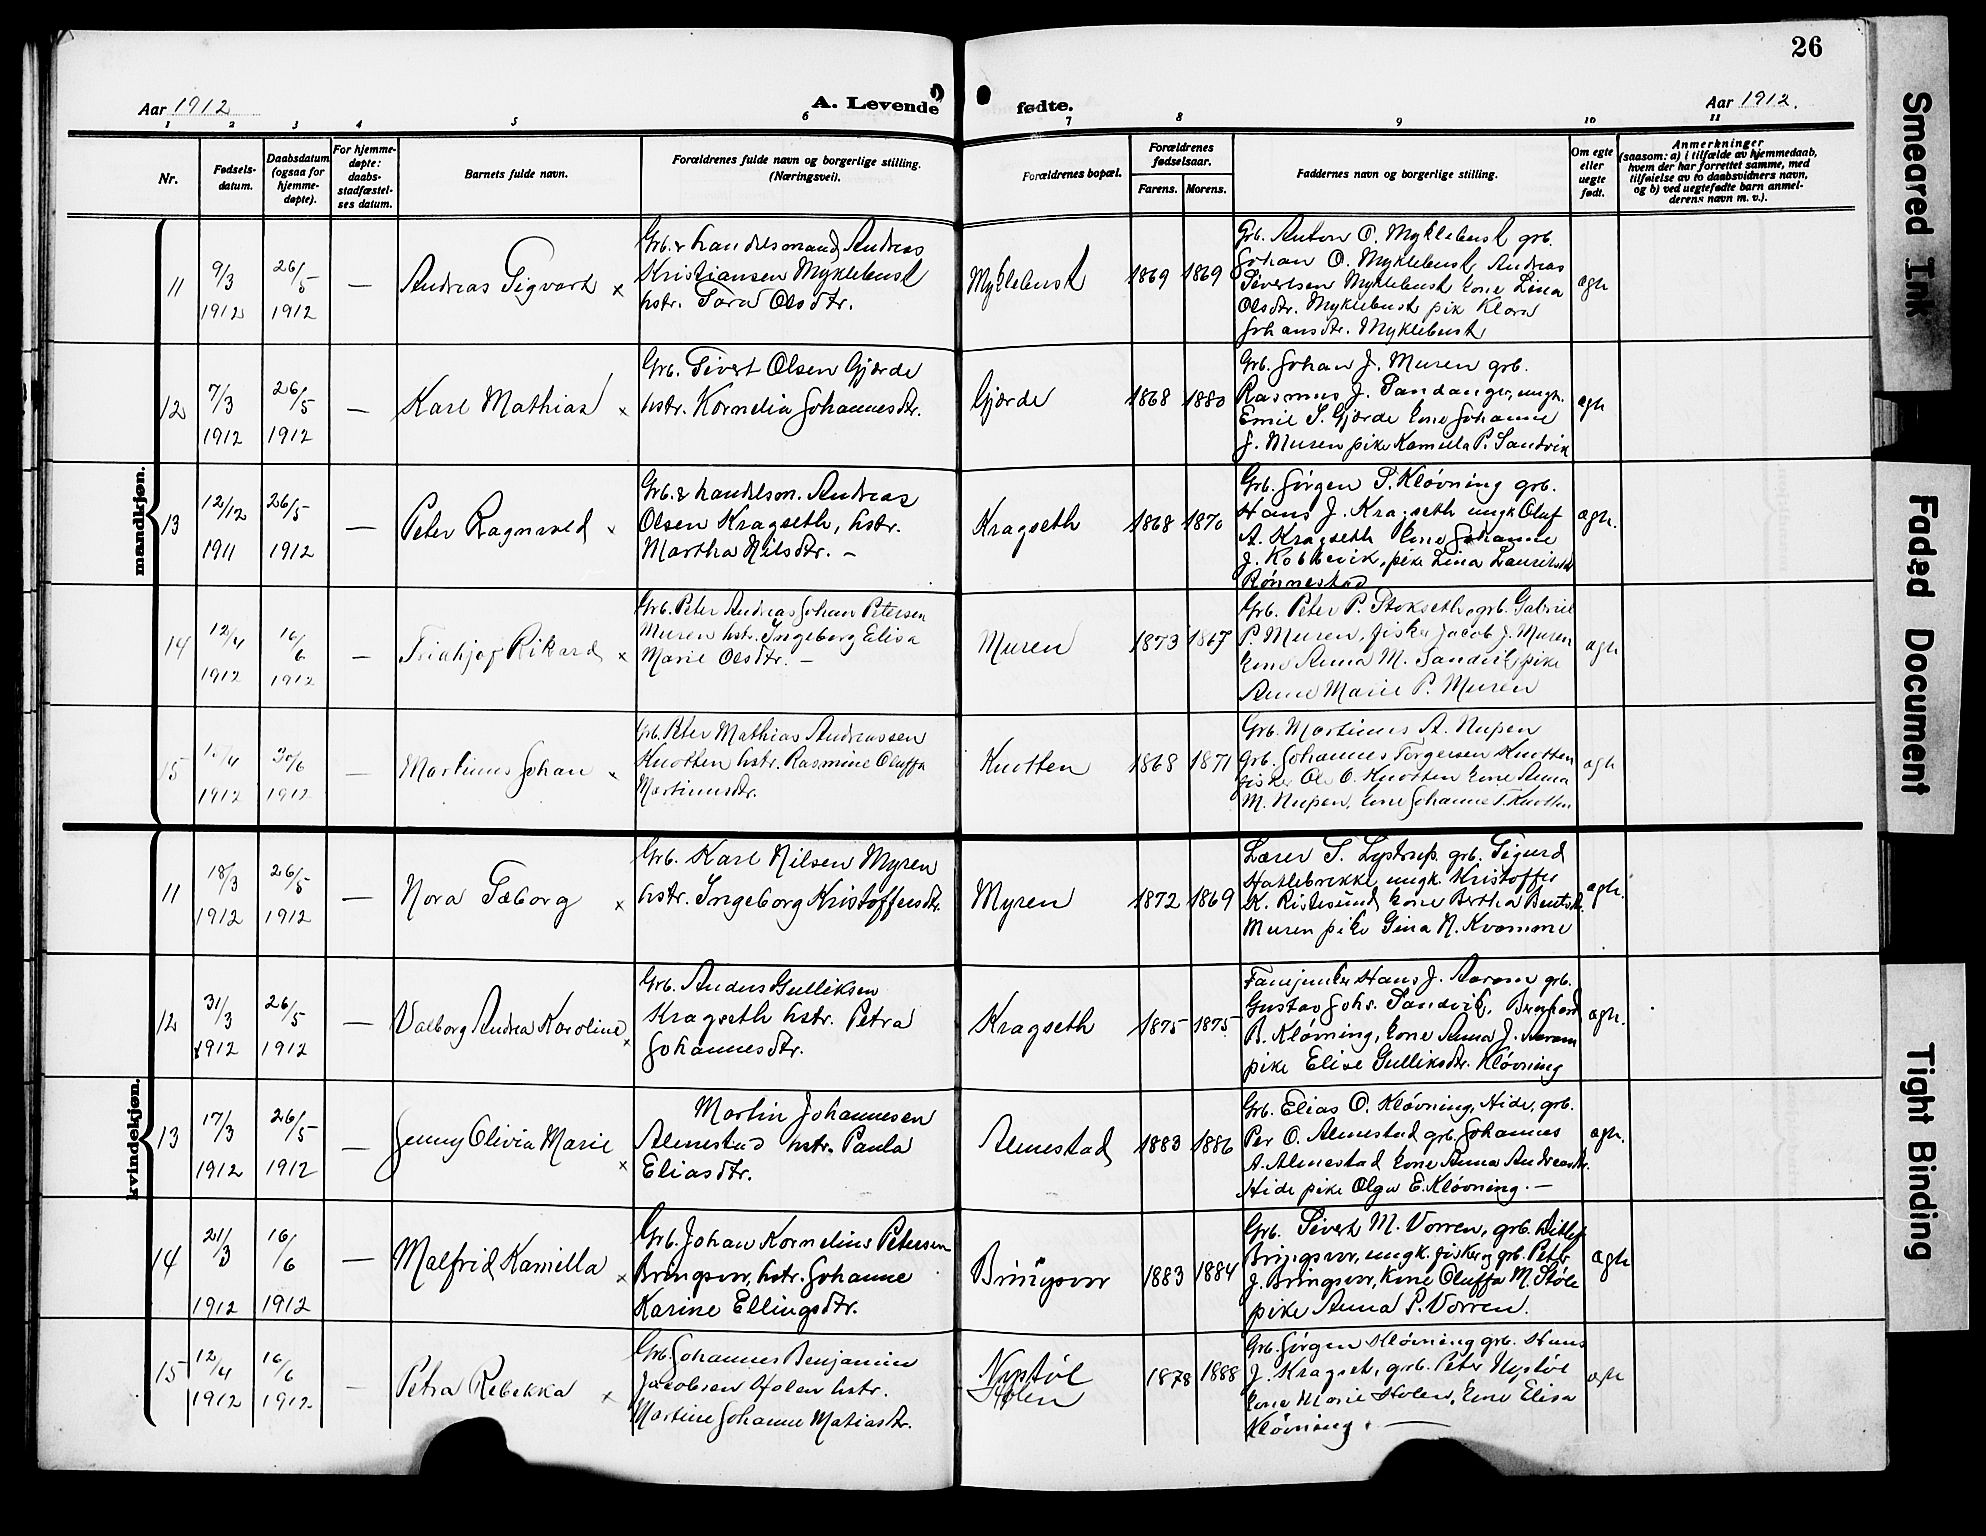 26
Aar 1912
A. Levende fødte.
Aar 1912.
1 2 3 4 5 6 7 8 9 10 11
Nr.
Fødsels-
datum.
Daabsdatum
(ogsaa for
hjemme-
døpte).
For hjemme-
døpte:
daabs-
stadfæstel-
ses datum.
Barnets fulde navn.
Forældrenes fulde navn og borgerlige stilling.
(Næringsvei).
Forældrenes bopæl.
Forældrenes
fødselsaar.
Farens. Morens.
Faddernes navn og borgerlige stilling.
Om egte
eller
uegte
født.
Anmerkninger
(saasom: a) i tilfælde av hjemmedaab,
hvem der har forrettet samme, med
tilføielse av to daabsvidners navn,
og b) ved uegtefødte barn anmel-
derens navn m. v.).
mandkjøn.
11
9/3
1912
26/5
1912
—
Andreas Sigvart x
Grb. & handelsmand Andreas
Kristiansen Myklebust
hstr. Tora Olsdtr.
Myklebust
1869 1869
Grb. Anton O. Myklebust grb.
Johan O. Myklebust, Andreas
Sivertsen Myklebust kone Lina
Olsdtr. Myklebust pik Klara
Johansdtr. Myklebust
ægte
12
7/3
1912
26/5
1912
—
Karl Mathias x
Grb. Sivert Olsen Gjærde
hstr. Kornelia Johannesdtr.
Gjærde
1868 1880
Grb. Johan J. Muren grb.
Rasmus J. Sandanger, ungk.
Emil S. Gjærde kone Johanne
J. Muren pike Kamilla P. Sandvik
ægte
13
12/12
1911
26/5
1912
—
Peter Ragnvald x
Grb. & handelsm. Andreas
Olsen Kragseth, hstr.
Martha Nilsdtr. —
Kragseth
1868 1870
Grb. Jørgen P. Kløvning grb.
Hans J. Kragseth ungk Oluf
A. Kragseth kone Johanne
J. Kobbevik, pike Lina Lauritsdtr
Rønnestad
ægte.
14
12/4
1912
16/6
1912
—
Fridtjof Rikard x
Grb. Peter Andreas Johan Petersen
Muren hstr. Ingeborg Elisa
Marie Olsdtr. —
Muren
1873 1867
Grb. Peter P. Stokseth, grb. Gabriel
P. Muren, fisker Jacob J. Muren
kone Anna M. Sandvik, pike
Anne Marie P. Muren
ægte
15
1912
30/6
1912
—
Martinus Johan x
Grb. Peter Mathias Andreassen
Knotten hstr. Rasmine Oluffa
Martinusdtr.
Knotten
1868 1871
Grb. Martinus A. Nupen
grb. Johannes Torgersen Knotten
fisker Ole O. Knotten kone Anna
M. Nupen, kone Johanne T. Knotten
ægte
kvindekjøn.
11
18/3
1912
26/5
1912
—
Nora Tæborg x
Grb. Karl Nilsen Myren
hstr. Ingeborg Kristoffersdtr.
Myren
1872 1869
Lærer S. Lystrup. grb. Sigurd
Hatlebrekke, ungk. Kristoffer
K. Ristesund kone Bertha Bentsdtr.
Muren pike Gina N. Kvamme
ægte.
12
31/3
1912
26/5
1912
—
Valborg Andrea Karoline x
Grb. Anders Gulliksen
Kragseth hstr. Petra
Johannesdtr.
Kragseth
1875 1875
Fanejunker Hans J. Aarom grb.
Gustav Johs. Sandvik, Bernhard
B. Kløvning, kone Anna J. Aarom
pike Elise Gulliksdtr. Kløvning
ægte.
13
17/3
1912
26/5
1912
—
Jenny Olivia Marie x
Martin Johannesen
Almestad hstr. Paula
Eliasdtr.
Almestad
1883 1886
Grb. Elias O. Kløvning, Hide, grb.
Per O. Almestad grb. Johannes
A. Almestad kone Anna Andreasdtr.
Hide pike Olga E. Kløvning. —
ægte.
14
21/3
1912
16/6
1912
—
Malfrid Kamilla x
Grb. Johan Kornelius Petersen
Bringsvor, hstr. Johanne
Karine Ellingsdtr.
Bringsvor
1883 1884
Grb. Sivert M. Vorren, grb. Ditlef
Bringsvor, ungk. fisker og grb. Peter
J. Bringsvor, kone Oluffa M. Støle
pike Anna P. Vorren.
ægte
15
12/4
1912
16/6
1912
—
Petra Rebekka x
Grb. Johannes Benjamin
Jacobsen Holen hstr.
Martine Johanne Matiasdtr.
Nystøl
Holen
1878 1888
Grb. Jørgen Kløvning grb. Hans
J. Kragset, grb. Peter Nystøl
kone Marie Holen, kone Elisa
Kløvning. —
ægte
Smeared Ink
Faded Document
Tight Binding